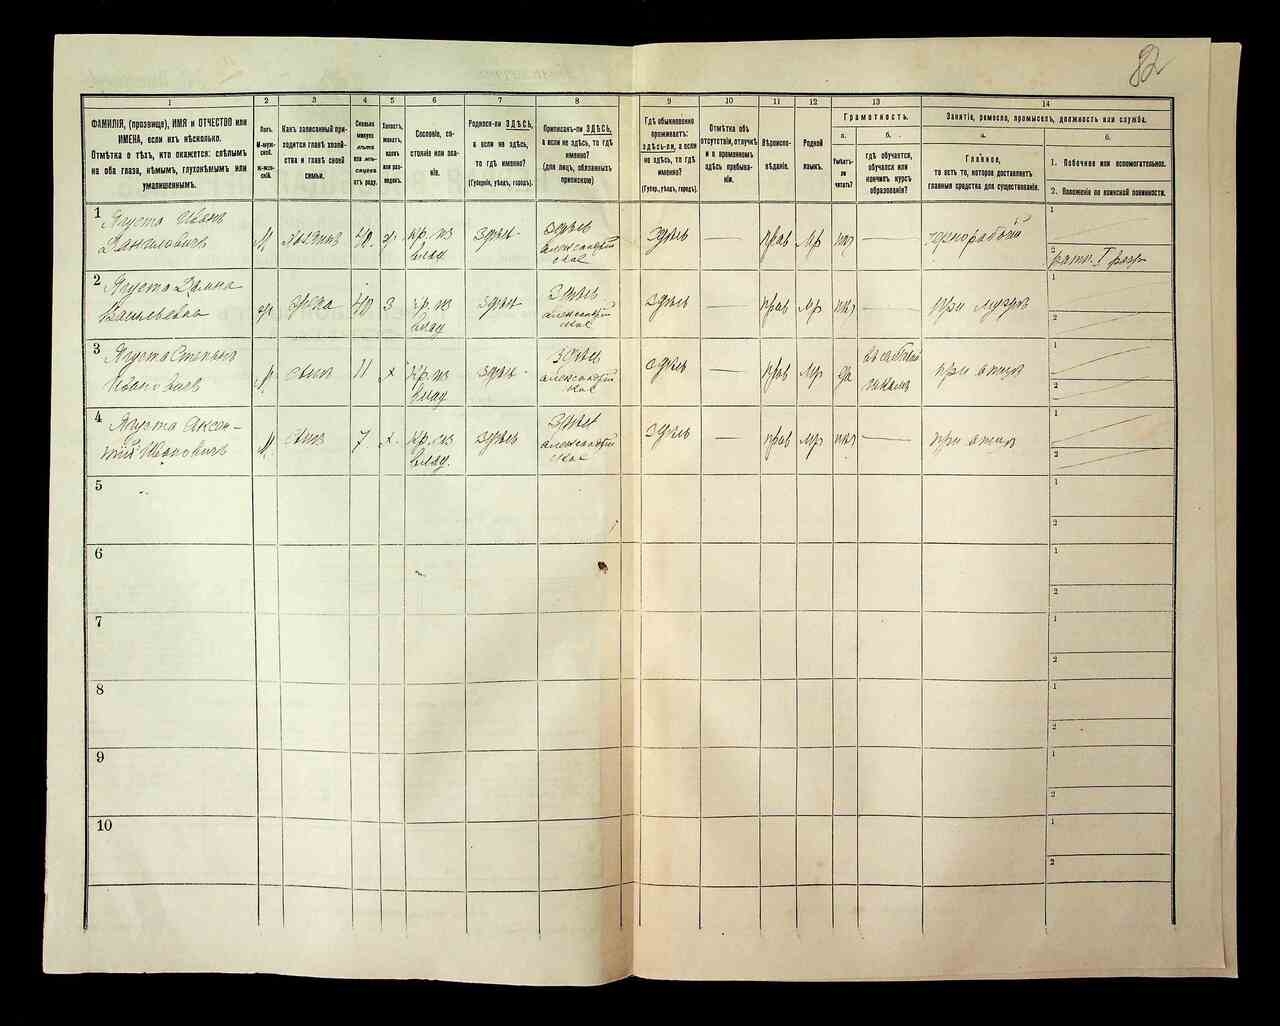 82
1 2 3 4 5 6 7 8 9 10 11 12 13 14
ФАМИЛІЯ, (прозвище), ИМЯ и ОТЧЕСТВО или
ИМЕНА, если ихъ нѣсколько.
Отмѣтка о тѣхъ, кто окажется: слѣпымъ
на оба глаза, нѣмымъ, глухонѣмымъ или
умалишеннымъ.
Полъ.
М-муж-
ской.
Ж-жен-
скій.
Какъ записанный при-
ходится главѣ хозяй-
ства и главѣ своей
семьи.
Сколько
минуло
лѣтъ
или мѣ-
сяцевъ
отъ роду.
Холостъ,
женатъ,
вдовъ
или раз-
веденъ.
Сословіе, со-
стояніе или зва-
ніе.
Родился-ли ЗДѢСЬ,
а если не здѣсь,
то гдѣ именно?
(Губернія, уѣздъ, городъ).
Приписанъ-ли ЗДѢСЬ,
а если не здѣсь, то гдѣ
именно?
(для лицъ, обязанныхъ
припискою)
Гдѣ обыкновенно
проживаетъ:
здѣсь-ли, а если
не здѣсь, то гдѣ
именно?
(Губер., уѣздъ, городъ).
Отмѣтка объ
отсутствіи, отлучкѣ
и о временномъ
здѣсь пребыва-
ніи.
Вѣроиспо-
вѣданіе.
Родной
языкъ.
Грамотность.
а.
Умѣетъ-
ли
читать?
б.
гдѣ обучается,
обучался или
кончилъ курсъ
образованія?
Занятіе, ремесло, промыселъ, должность или служба.
а.
Главное,
то есть то, которое доставляетъ
главныя средства для существованія.
б.
1. Побочное или вспомогательное.
2. Положеніе по воинской повинности.
1 Ягуста Иванъ
Даниловичъ
М хозяинъ 40 кр. из
влад здѣсь Здѣсь
александрій
ское здѣсь — прав Мр —
чернорабочій
1
2 ратн. I разр
2 Ягуста Домна
Васильевна
40 кр. из
влад здѣсь Здѣсь
александрій
ское Здѣсь — прав Мр — при мужѣ
1
2
3 Ягуста Степанъ
Ивановичъ
М сынъ 11 х Кр. из
влад здѣсь Здѣсь
александрій
ское здѣсь — прав Мр при отцѣ
1
2
4 Ягуста Аксен-
тій Ивановичъ
М сынъ 7 х Кр. из
влад. здѣсь Здѣсь
александрій
ское Здѣсь — прав Мр — при отцѣ
1
2
5
1
2
6
1
2
7
1
2
8
1
2
9
1
2
10
1
2